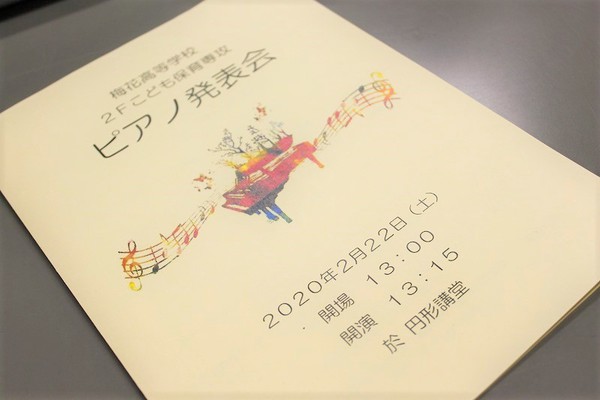 梅花高等学校
2Fこども保育専攻
ピアノ発表会
2020年2月22日(土)
開場 13:00
開演 13:15
於 円形講堂